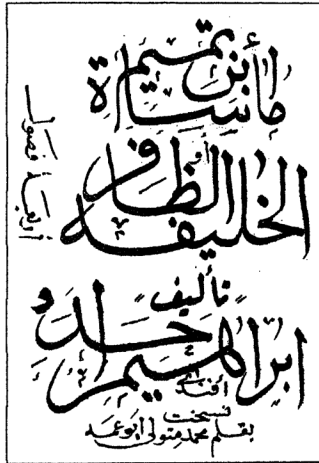 مأساة
ابن تميم
الخليفه الظافر
أربعة فصول
"تأليف"
ابراهيم خالد
افندى
نسخت
بقلم محمد متولى ابو عمه